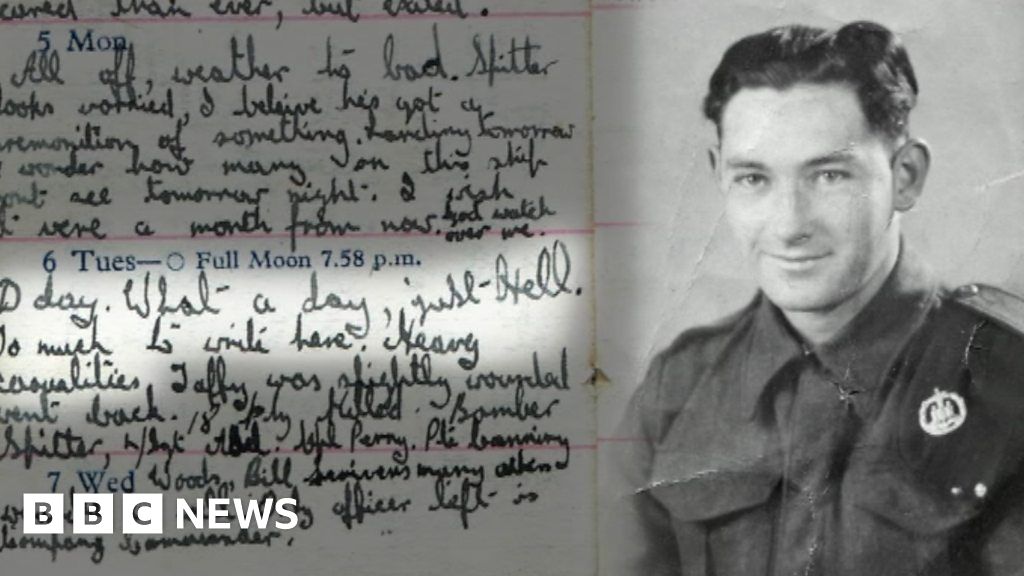 scared than ever, but exited.
5 Mon
All off, weather to bad. Spitter
looks worried, I beleive he's got a
premonition of something. Landing tomorrow
I wonder how many on this ship
wont see tomorrow night. I wish
I were a month from now. God watch
over me.
6 Tues—○ Full Moon 7.58 p.m.
D day. What a day, just Hell.
To much to write here. Heavy
casualities, Taffy was slightly wounded
went back. 18 killed. Bomber
Spitter, Cpl Perry. Pte
7 Wed Woods, Bill, many others
officer left is
Company Commander.
BBC NEWS